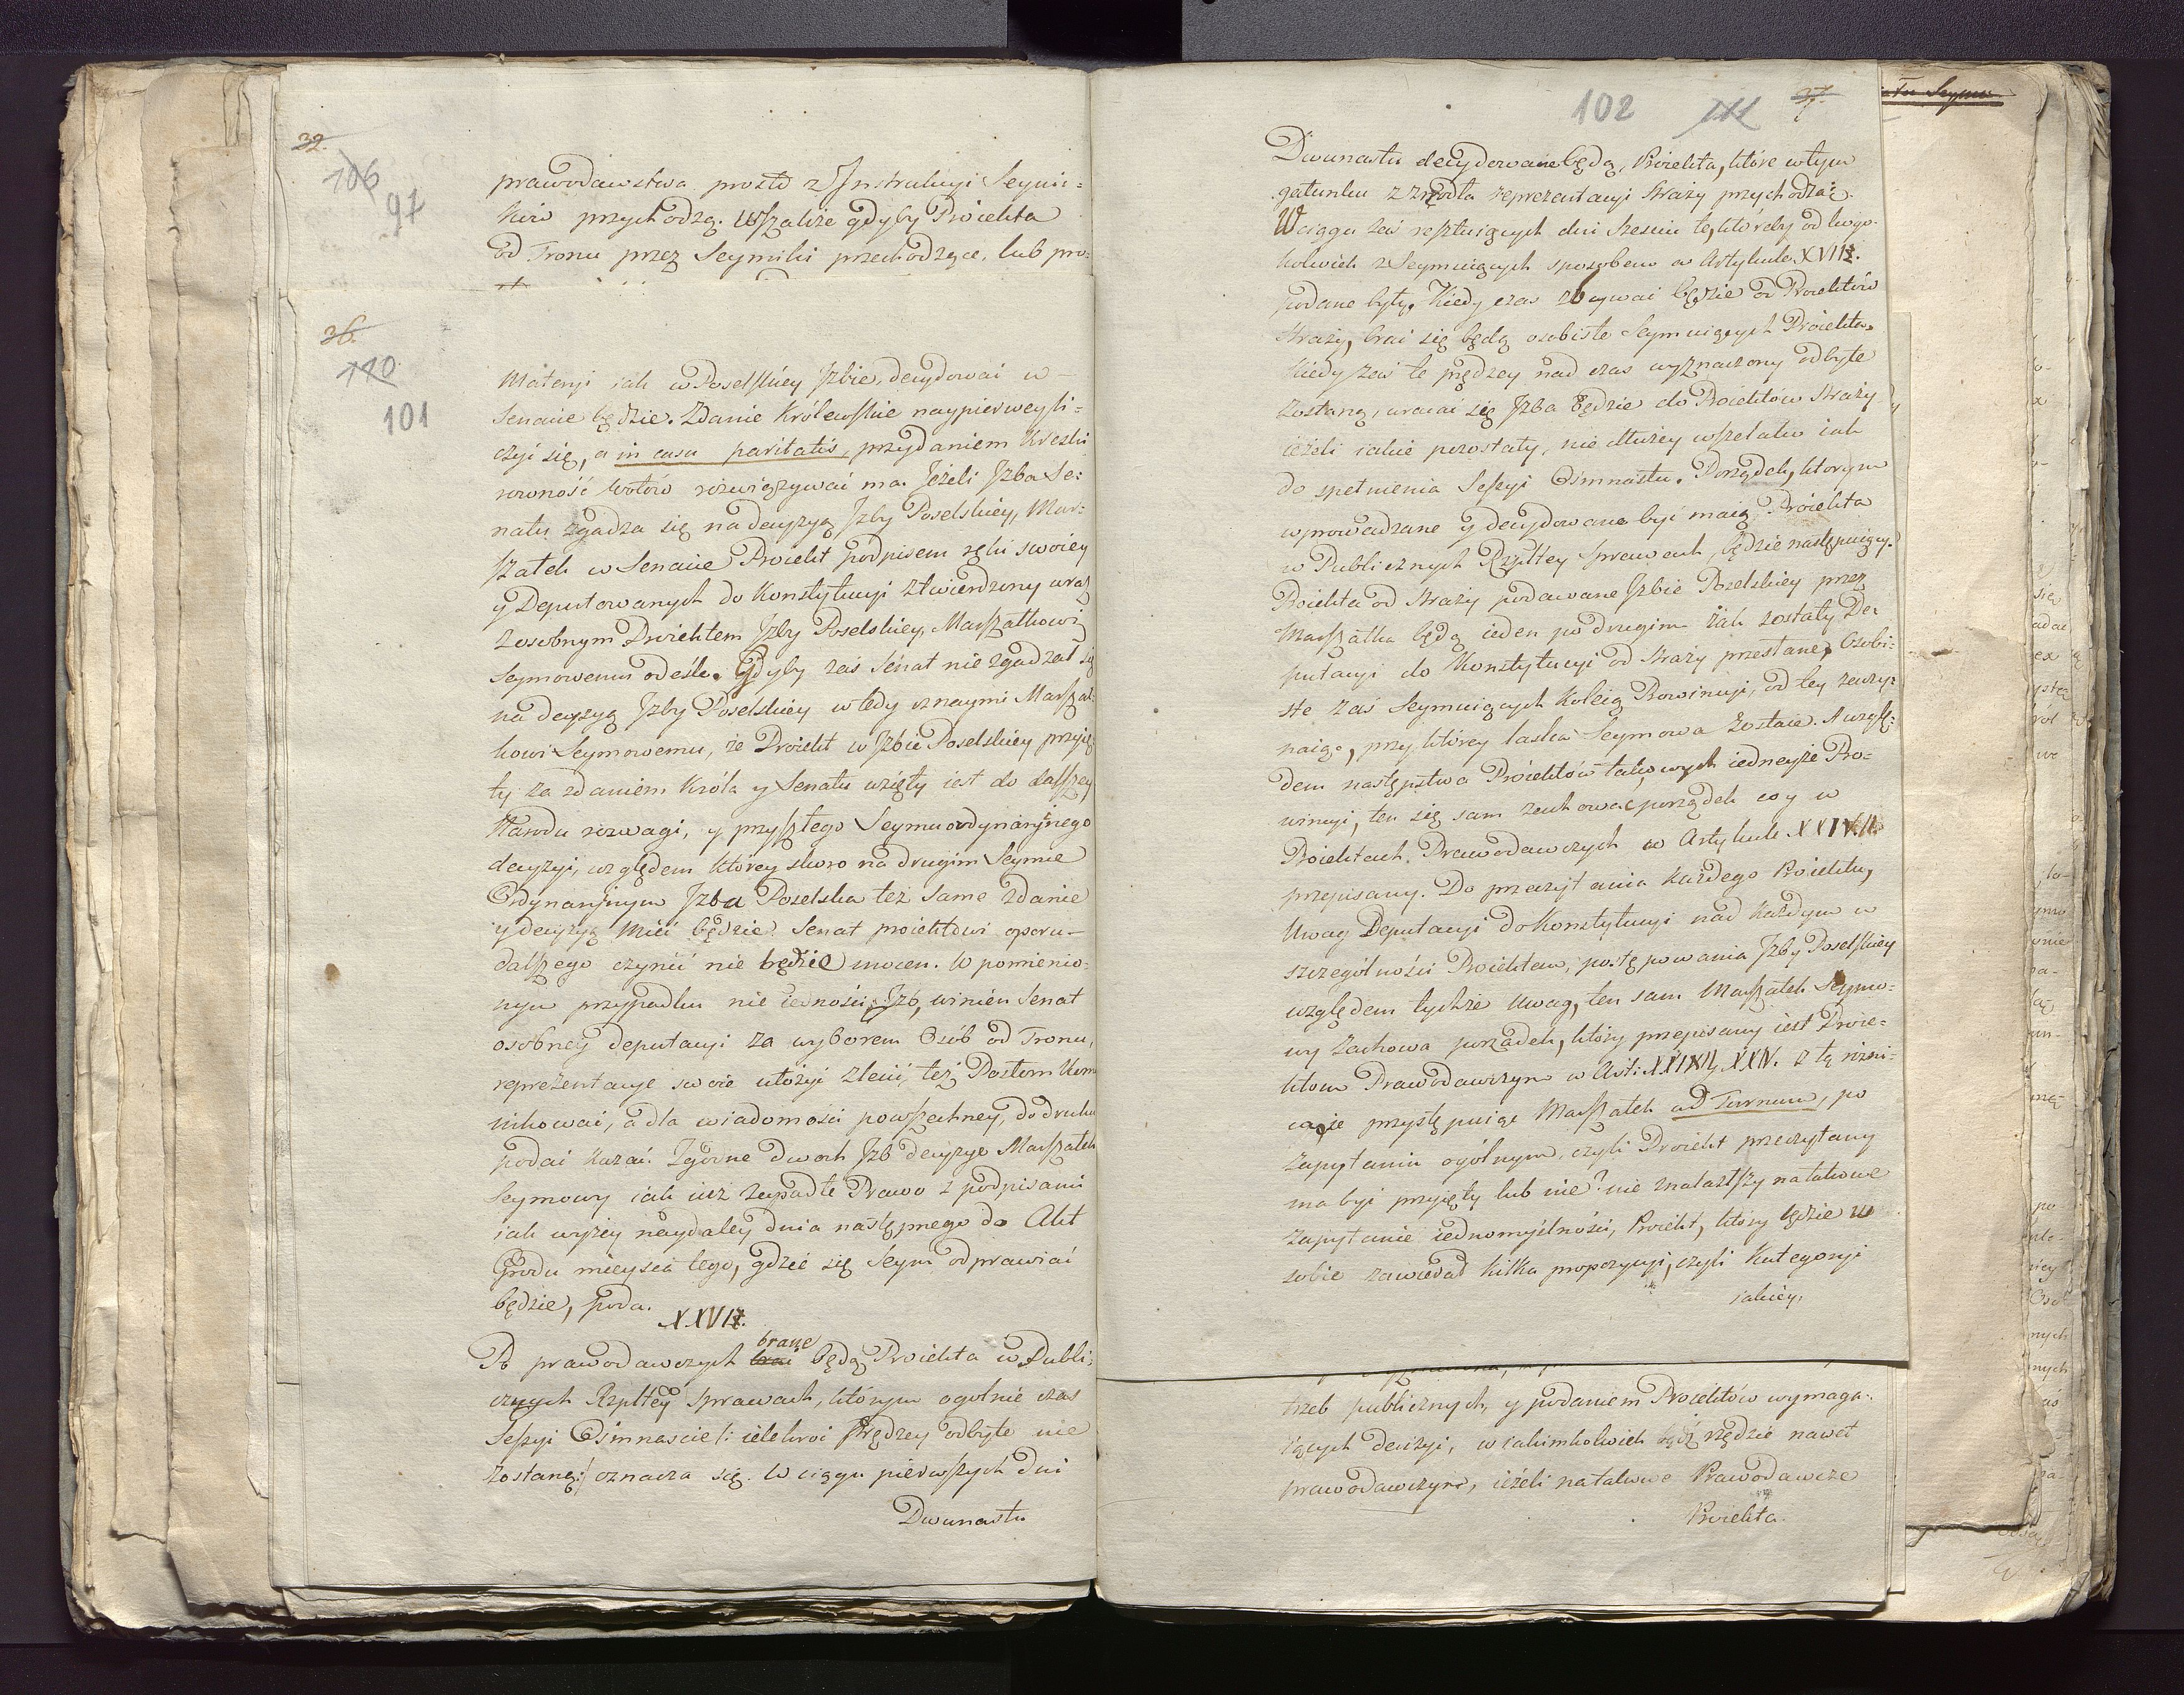 32.
106
97
prawodawstwa prosto z Instrukcyi Seymi-
ków przychodzą. Wszakże gdyby Proiekta
od Tronu przez Seymiki przechodzące, lub pro-
36.
110.
101
Materyi iak w Poselskiey Izbie, decydować w
Senacie będzie. Zdanie Królewskie naypierwey li-
czyć się, a in casu paritatis, przydaniem Kreski
rowność wotów rozwiązywać ma. Jeżeli Izba Se-
natu zgadza się na decyzyą Izby Poselskiey, Mar-
szałek w Senacie Proiekt podpisem ręki swoiey
y Deputowanych do Konstytucyi ztwierdzony wraz
z osobnym Proiektem Izby Poselskiey, Marszałkowi
Seymowemu odeśle. Gdyby zaś Senat nie zgadzał się
na decyzyą Izby Poselskiey wtedy oznaymi Marszał-
kowi Seymowemu, że Proiekt w Izbie Poselskiey przyię-
ty za zdaniem Króla y Senatu wzięty iest do dalszey
Narodu rozwagi, y przyszłego Seymu ordynaryinego
decyzyi, względem którey skoro na drugim Seymie
Ordynaryinym Izba Poselska też same zdanie
y decyzyą mieć będzie. Senat proiektowi oporu
dalszego czynić nie będzie mocen. W pomienio-
nym przypadku nie iedności Izb, winien Senat
osobney deputacyi za wyborem Osób od Tronu,
reprezentacye swoie ułożyć zlecić, też Posłom kom
nikować, a dla wiadomości powszechney, do druku
podać kazać. Zgodne dwoch Izb decyzye Marszałek
Seymowy iak iuż zapadłe Prawo z podpisami
iak wyżey naydaley dnia następnego do Akt
Grodu mieysca tego, gdzie się Seym odprawiać
będzie, poda.
XXVII.
brane
Po prawodawczych brać będą Proiekta w Publi-
cznych Rzpltey sprawach, którym ogólnie czas
Sessyi Ośmnaście /: ielekroć prędzey odbyte nie
zostaną :/ oznacza się. W ciągu pierwszych dni
Dwunastu
102 111 37.
Dwunastu decydowane będą, Proiekta, które w tym
gatunku z zrzodła reprezentacyi Straży przychodzą.
W ciągu zaś resztuiących dni Sześciu te, któreby od kogo-
kolwiek z Seymuiących sposobem w Artykule XVIII.
podane były. Kiedy czas zbywać będzie od Proiektów
Straży, brać się będą osobiste Seymuiących Proiekta.
Kiedy zaś te prędzey nad czas wyznaczony odbyte
zostaną, wracać się Izba będzie do Proiektów Straży
ieżeli iakie pozostały, nie dłużey wszelako iak
do spełnienia Sessyi Ośmnastu. Porządek, którym
wprowadzane y decydowane być maią Proiekta
w Publicznych Rzpltey Sprawach, będzie następuiący.
Proiekta od Straży podawane Izbie Poselskiey przez
Marszałka będą ieden po drugim iak zostały De-
putacyi do Konstytucyi od Straży przesłane, Osobi-
ste zaś Seymuiących Koleią Prowincyi, od tey zaczy-
naiąc, przy którey laska Seymowa zostaie. A wzglę-
dem następstwa Proiektów takowych iedneyże Pro-
wincyi, ten się sam zachować porządek co y w
Proiektach Prawodawczych w Artykule XXIV.
przepisany. Do przeczytania każdego Proiektu,
Uwag Deputacyi do Konstytucyi nad każdym w
szczególności Proiektem, postępowania Izby Poselskiey
względem tychże Uwag, ten sam Marszałek Seymo-
wy zachowa porządek, który przepisany iest Proie-
ktom Prawodawczym w Art: XXIII, XXIV. z tą różni-
cą, że przystępuiąc Marszałek ad Turnum, po
zapytaniu ogólnym, czyli Proiekt przeczytany
ma być przyięty lub nie? nie znalazłszy na takowe
zapytanie iednomyślności, Proiekt, który będzie w
sobie zawierał kilka propozycyi, czyli Kategoryi
iakiey,
trzeb publicznych, y podaniem Proiektów wymaga-
iących decyzyi, w iakimkolwiek rzędzie nawet
prawodawczym, ieżeli na takowe Prawodawcze
Proiekta.